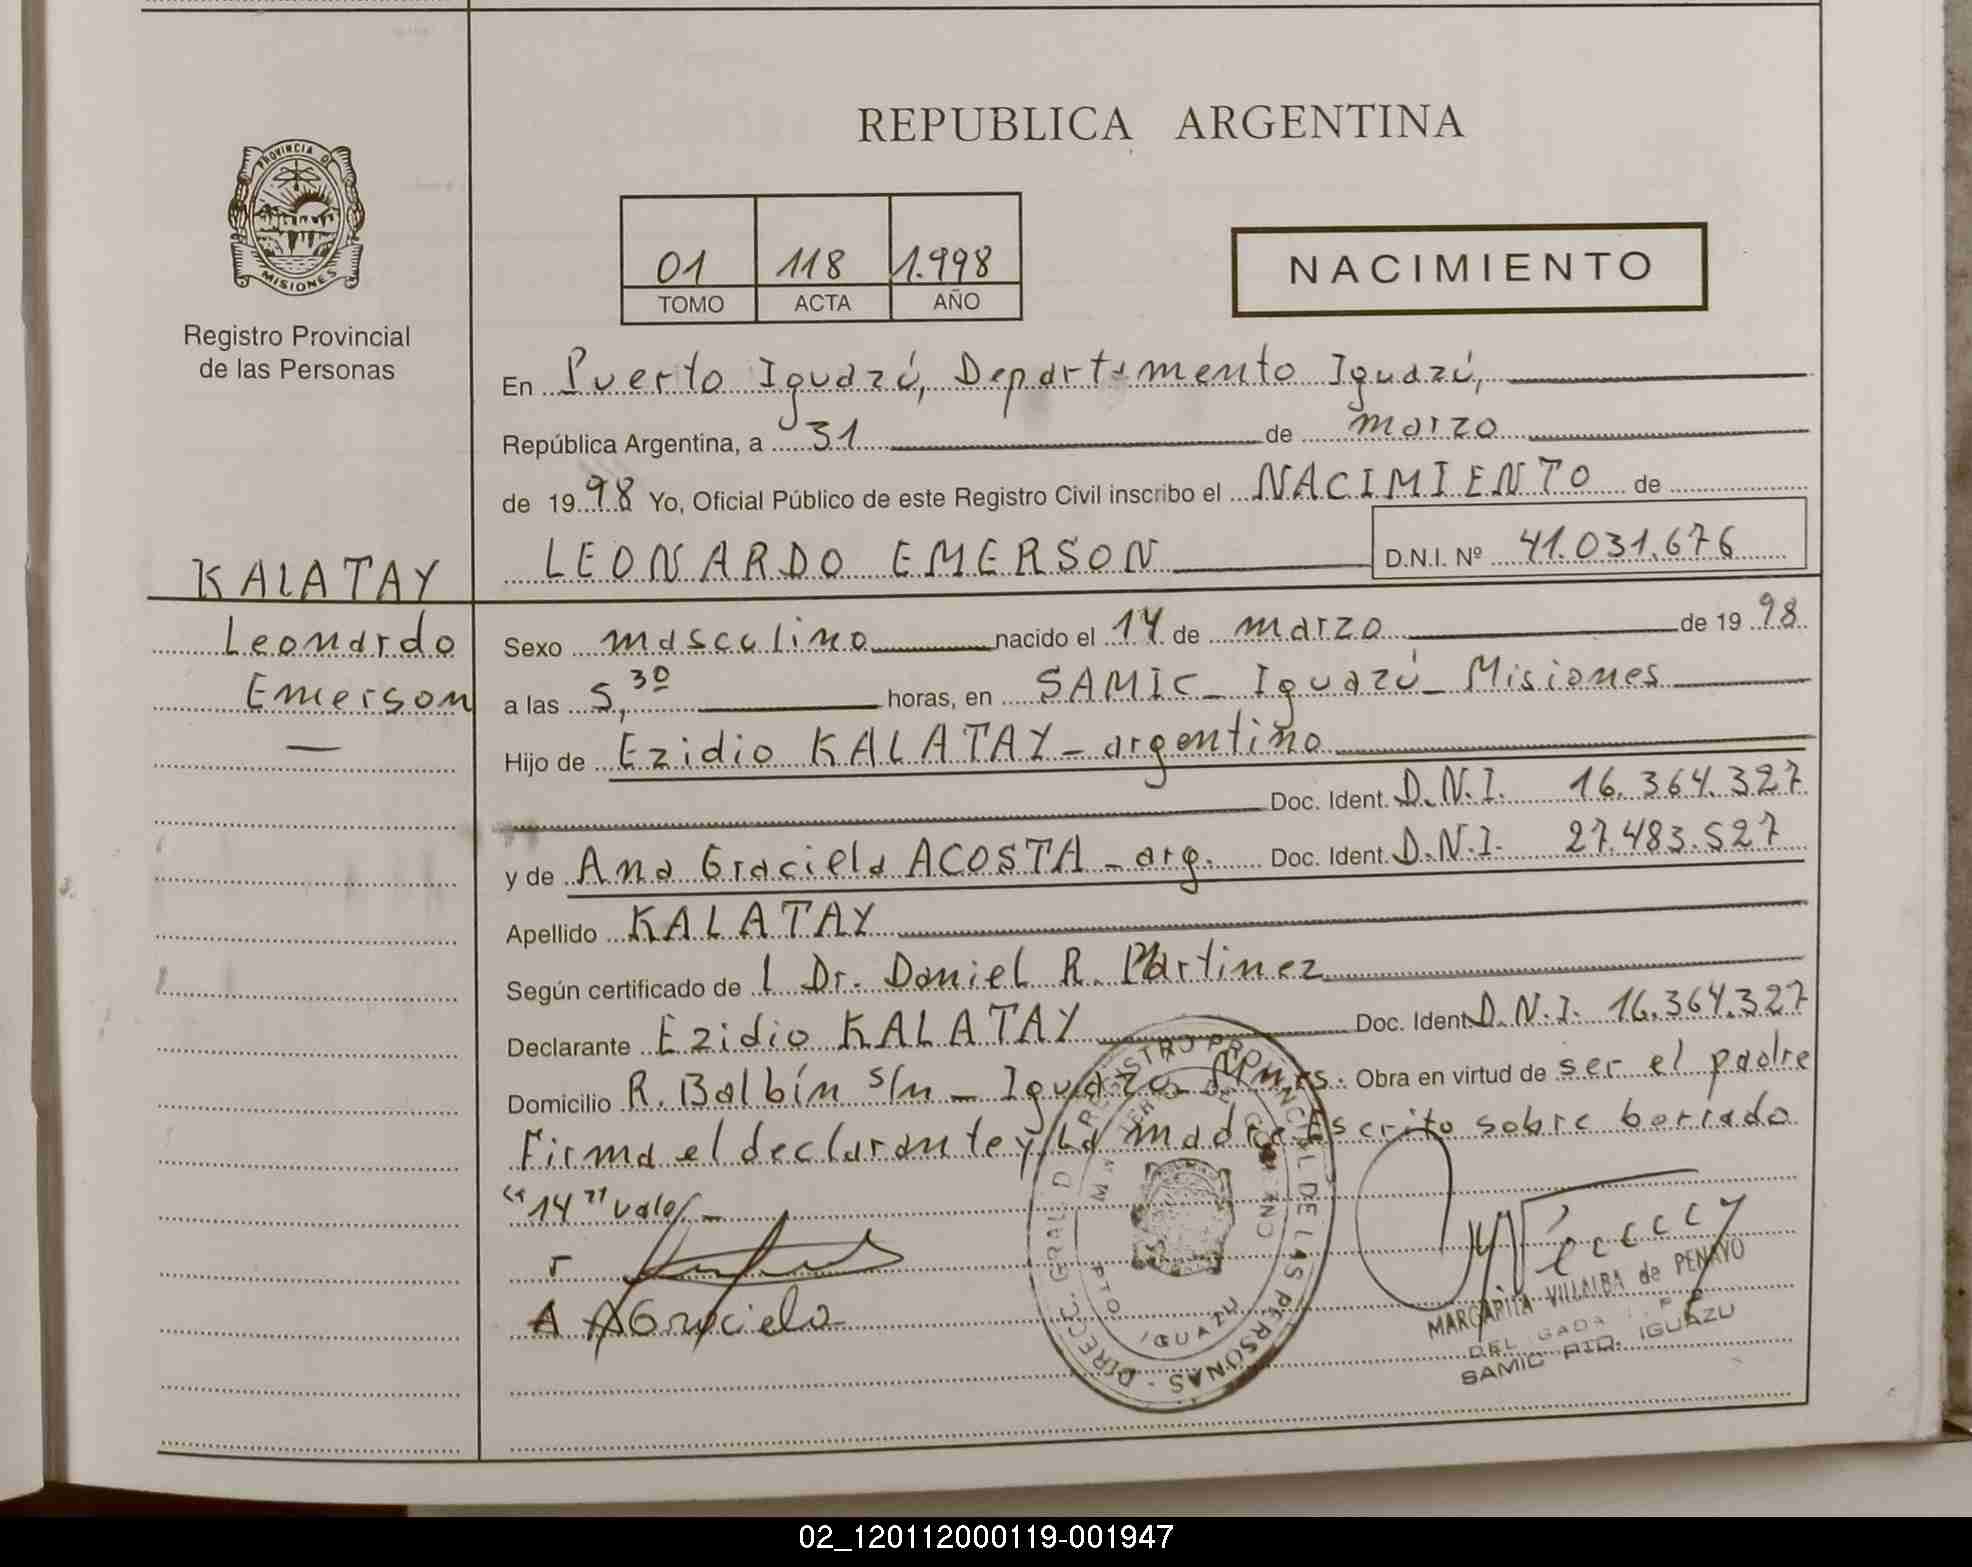 REPUBLICA ARGENTINA
PROVINCIA DE
MISIONES
Registro Provincial
de las Personas
01 118 1.998
TOMO ACTA AÑO
NACIMIENTO
En Puerto Iguazú, Departamento Iguazú,
República Argentina, a 31 de marzo
de 1998 Yo, Oficial Público de este Registro Civil inscribo el NACIMIENTO de
LEONARDO EMERSON D.N.I. Nº 41.031.676
KALATAY
Leonardo
Emerson
Sexo masculino nacido el 14 de marzo de 1998
a las 5,30 horas, en SAMIC - Iguazú - Misiones
Hijo de Ezidio KALATAY - argentino
Doc. Ident. D.N.I. 16.364.327
y de Ana Graciela ACOSTA - arg. Doc. Ident. D.N.I. 27.483.527
Apellido KALATAY
Según certificado de l Dr. Daniel R. Martinez
Declarante Ezidio KALATAY Doc. Ident. D.N.I. 16.364.327
Domicilio R. Balbín s/n - Iguazú - Mnes. Obra en virtud de ser el padre
Firma el declarante y la madre Escrito sobre borrado
"14" vale. -
A Graciela
DIRECC. GRAL D REGISTRO PROVINCIAL DE LAS PERSONAS
PTO IGUAZU
MARGARITA VILLALBA de PENAYO
SAMIC PTO. IGUAZU
02_120112000119-001947